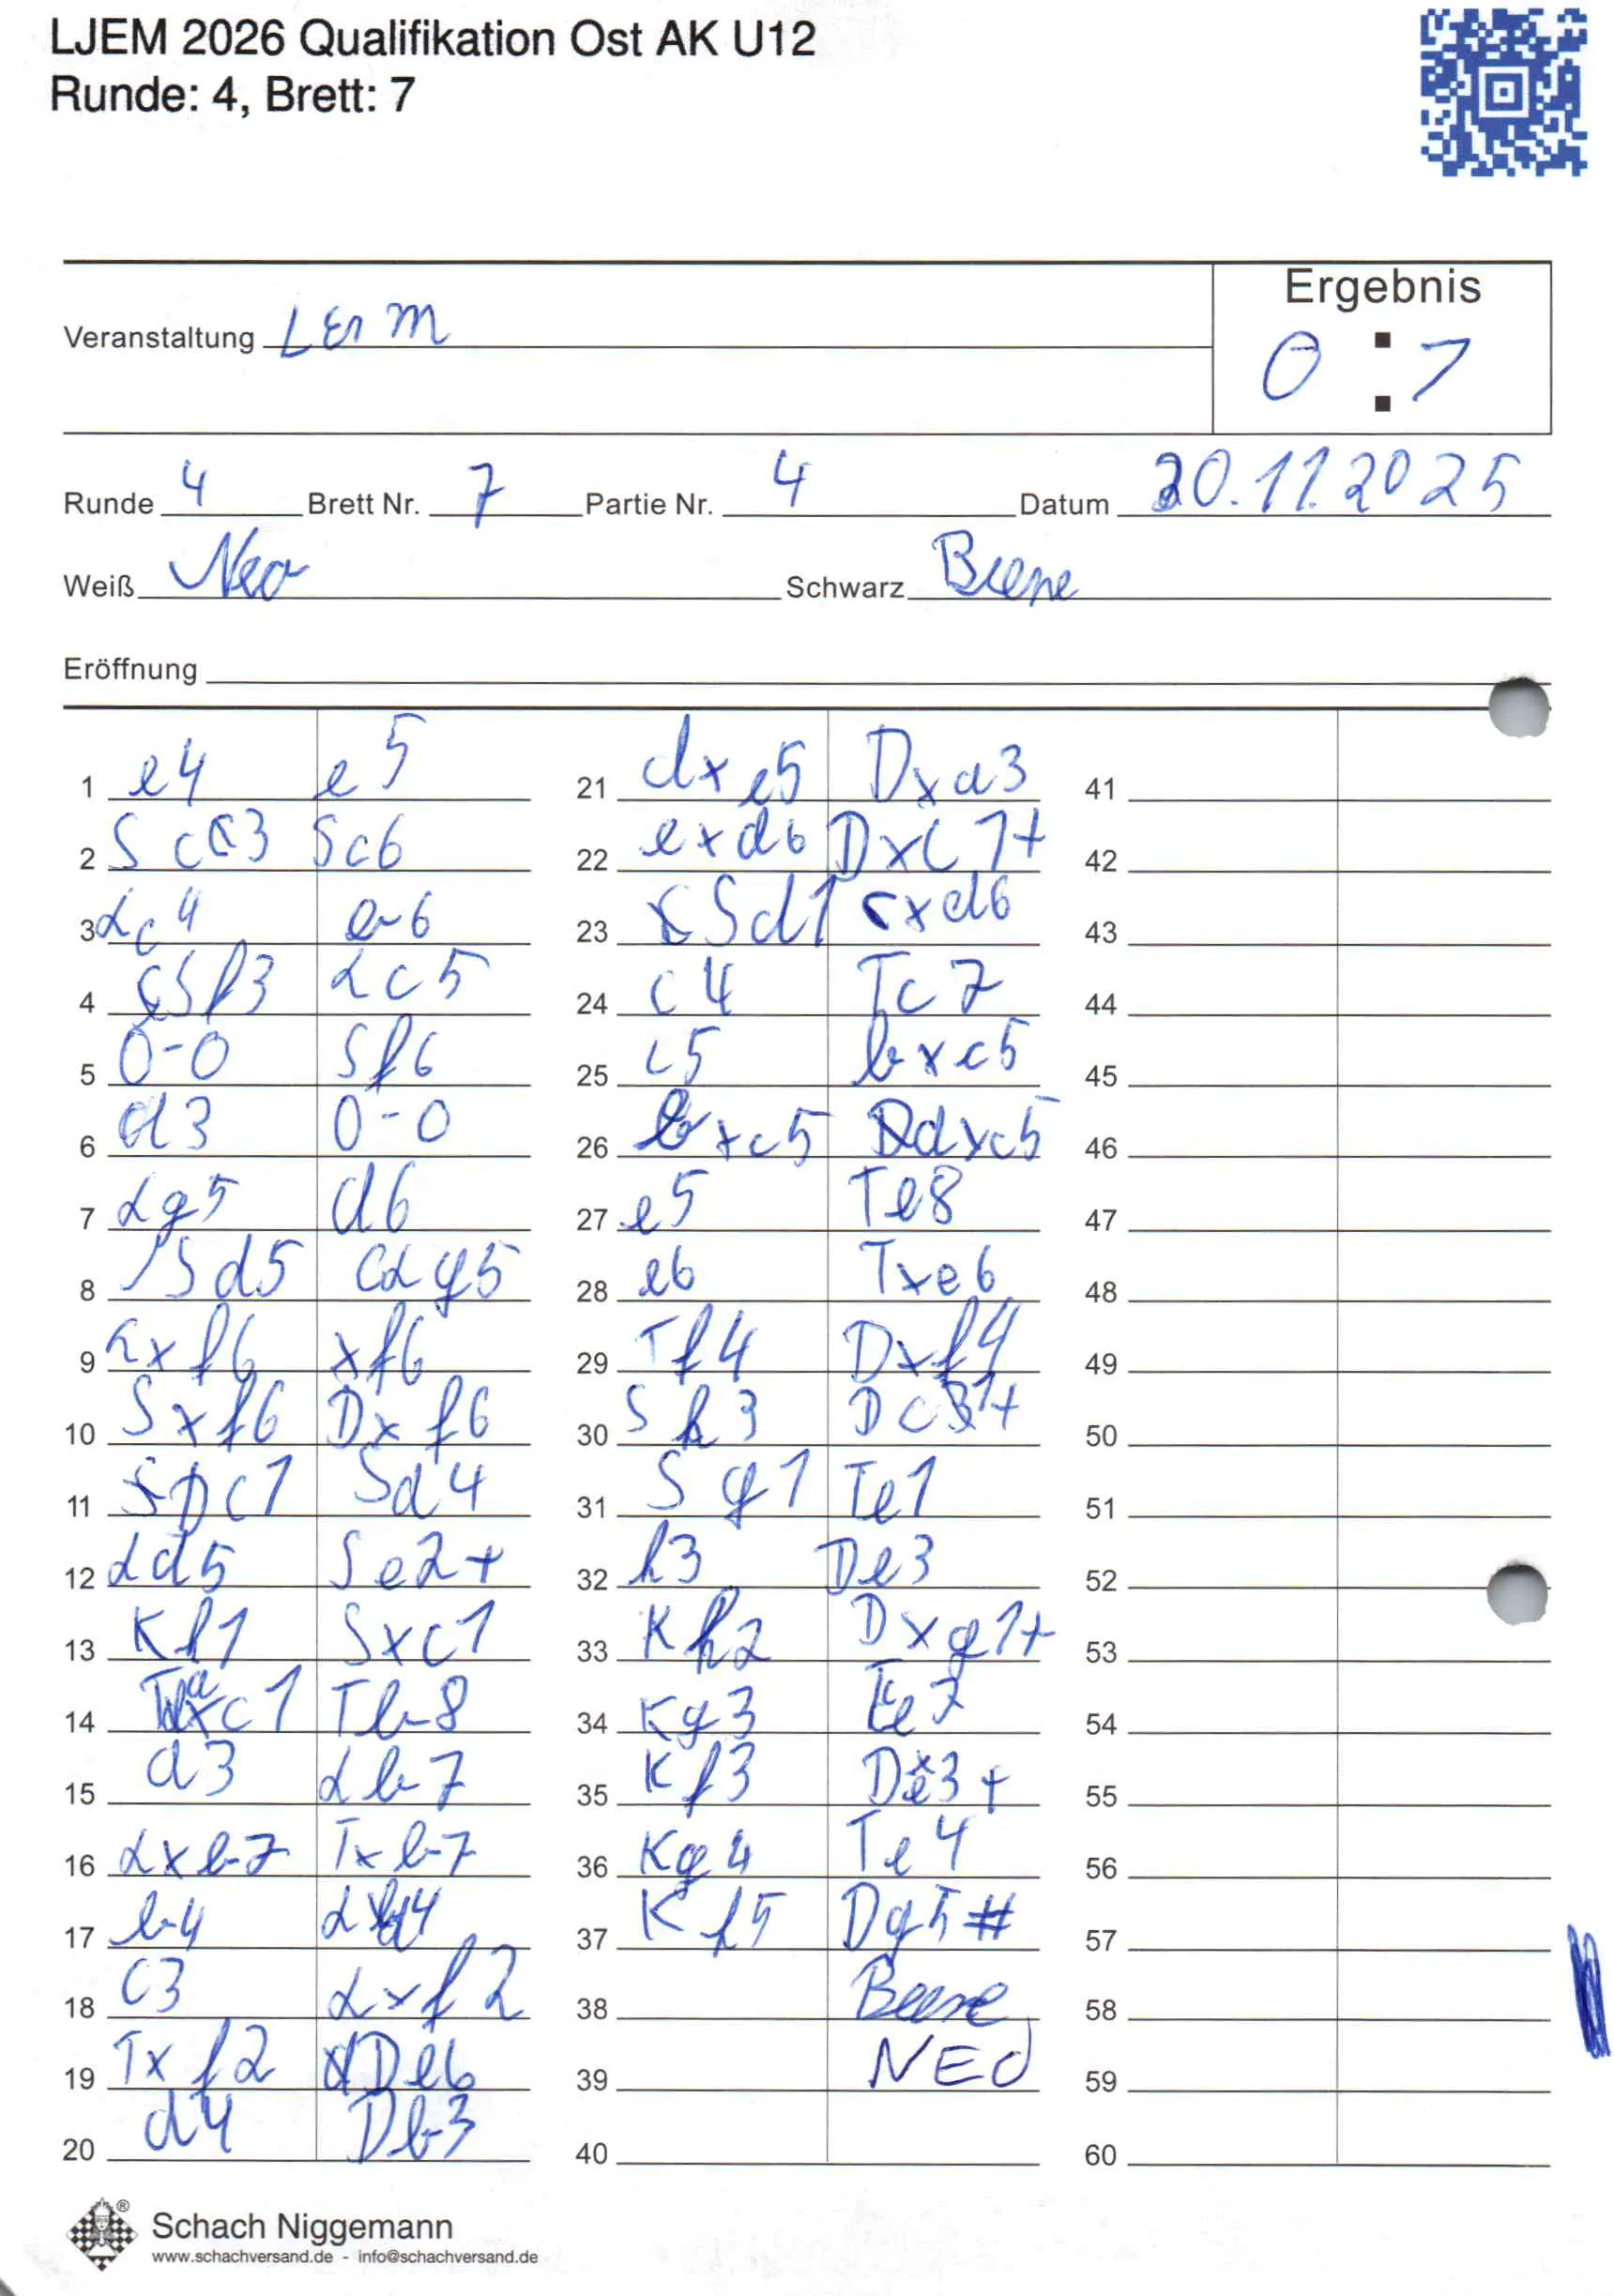 LJEM 2026 Qualifikation Ost AK U12
Runde: 4, Brett: 7
Ergebnis
0 : 1
Veranstaltung LEM
Runde 4 Brett Nr. 7 Partie Nr. 4 Datum 20.11.2025
Weiß Neo Schwarz Beene
Eröffnung
1 e4 e5
2 Sc3 Sc6
3 Lc4 b6
4 Sf3 Lc5
5 0-0 Sf6
6 d3 0-0
7 Lg5 d6
8 Sd5 Lg5
9 Lxf6 xf6
10 Sxf6 Dxf6
11 Dc1 Sd4
12 Ld5 Se2+
13 Kh1 Sxc1
14 Taxc1 Tb8
15 a3 Lb7
16 Lxb7 Txb7
17 b4 Ld4
18 c3 Lxf2
19 Txf2 De6
20 d4 Db3
21 dxe5 Dxa3
22 exd6 Dxc1+
23 Sd1 cxd6
24 c4 Tc7
25 c5 bxc5
26 bxc5 dxc5
27 e5 Te8
28 e6 Txe6
29 Tf4 Dxf4
30 Sh3 Dc1+
31 Sg1 Te1
32 h3 De3
33 Kh2 Dxg1+
34 Kg3 Te7
35 Kf3 De3+
36 Kg4 Te4
37 Kf5 Dg5#
38 Beene
39 NEO
40
41
42
43
44
45
46
47
48
49
50
51
52
53
54
55
56
57
58
59
60
Schach Niggemann
www.schachversand.de - info@schachversand.de